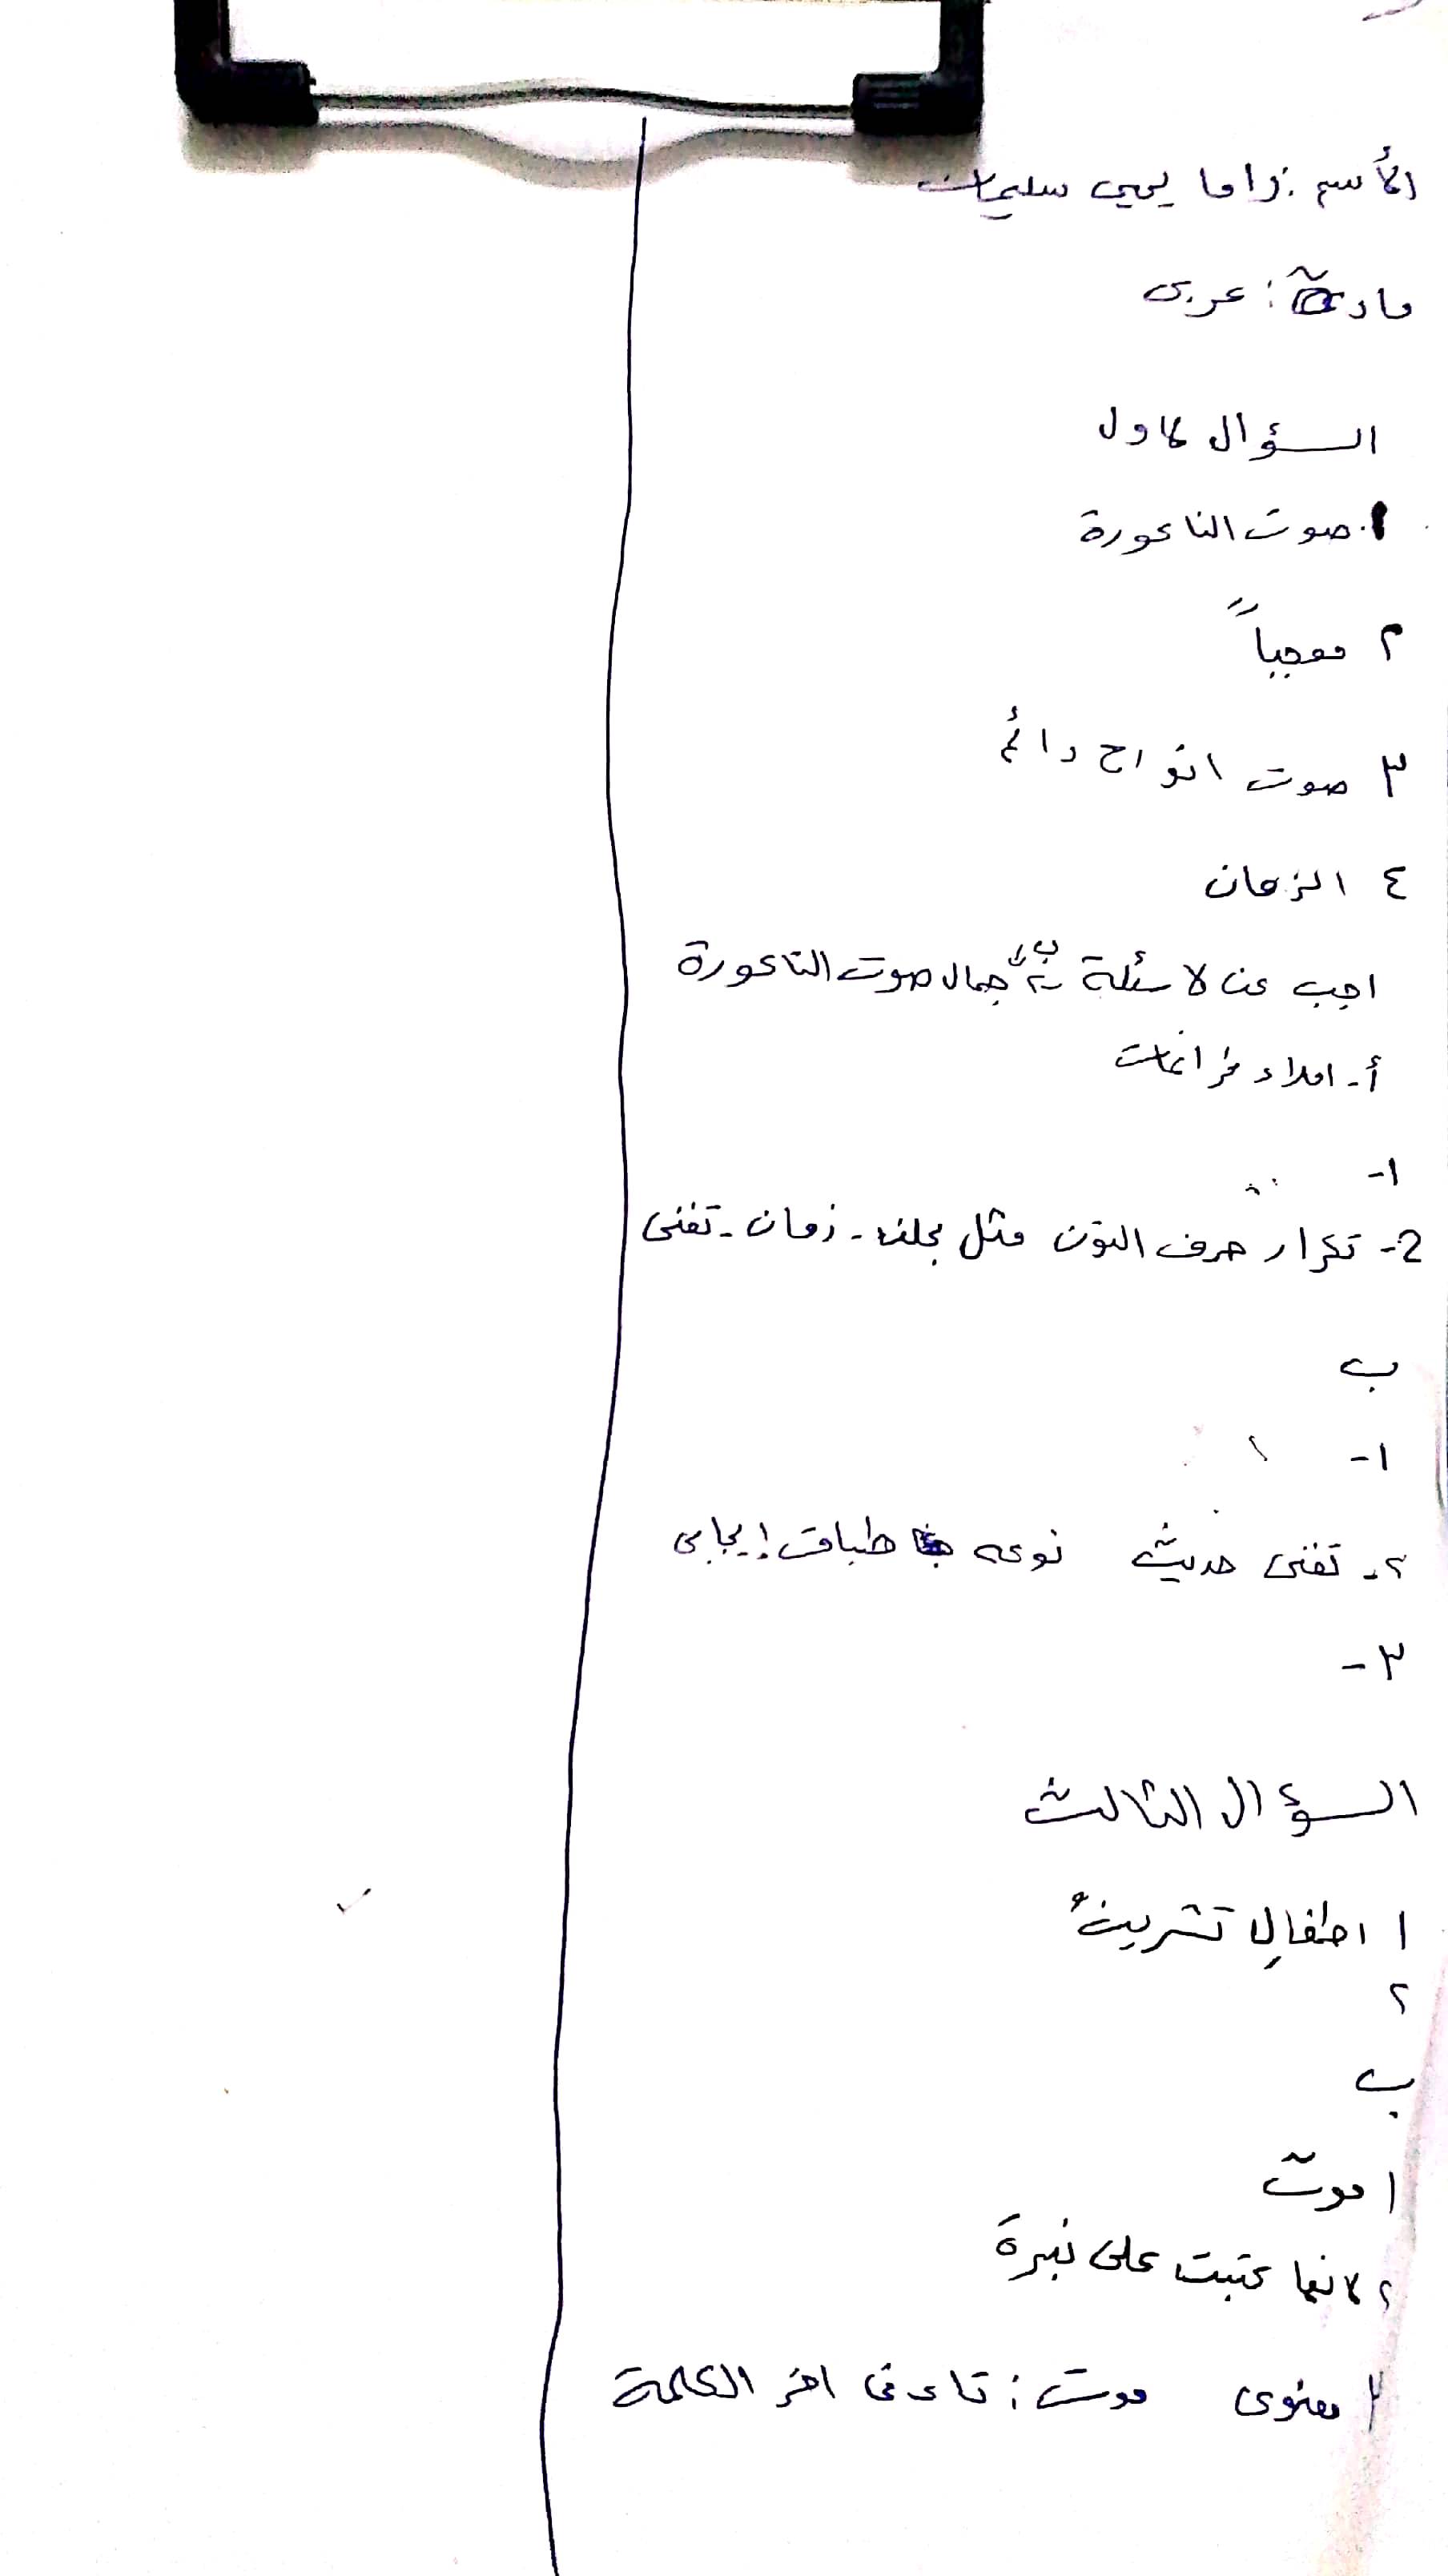 الأسم : راما يحيى سليمان
مادة : عربي
السؤال لاول
1. صوت الناعورة
٢ معجباً
٣ صوت انواح دائم
٤ الزمان
اجب عن لاسئلة ب جمال صوت الناعورة
أ- املاء فراغات
١-
2- تكرار حرف النون مثل - زمان - تفنى
ب
١-
٢- تفنى حديث نوعه طباق إيجابي
٣-
السؤال الثالث
١ اطفالِ تشرينُ
٢
ب
١ موت
٢ لانها كتبت على نبرة
٣ معنوي موت : تاء في اخر الكلمة